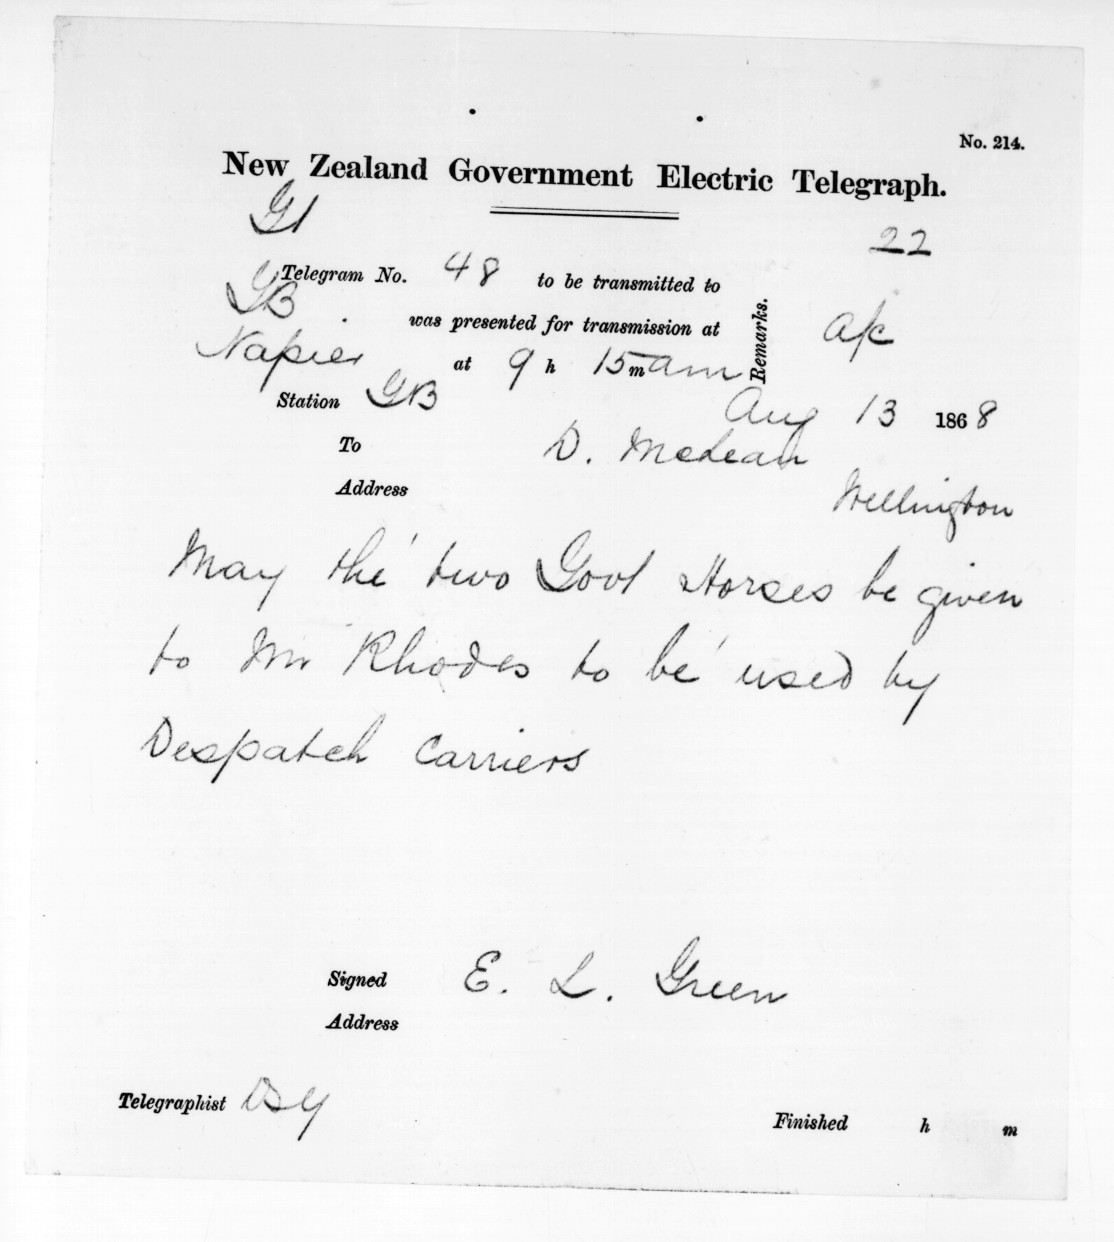 No. 214.
New Zealand Government Electric Telegraph.
22
Telegram No. 48 to be transmitted to
GB
was presented for transmission at
Remarks.
a/c
Napier at 9 h 15 m am
Station GB
Aug 13 1868
To D. McLean
Address Wellington
May the two Govt Horses be given
to Mr Rhodes to be used by
Despatch Carriers
Signed E. L. Green
Address
Telegraphist
Finished h m